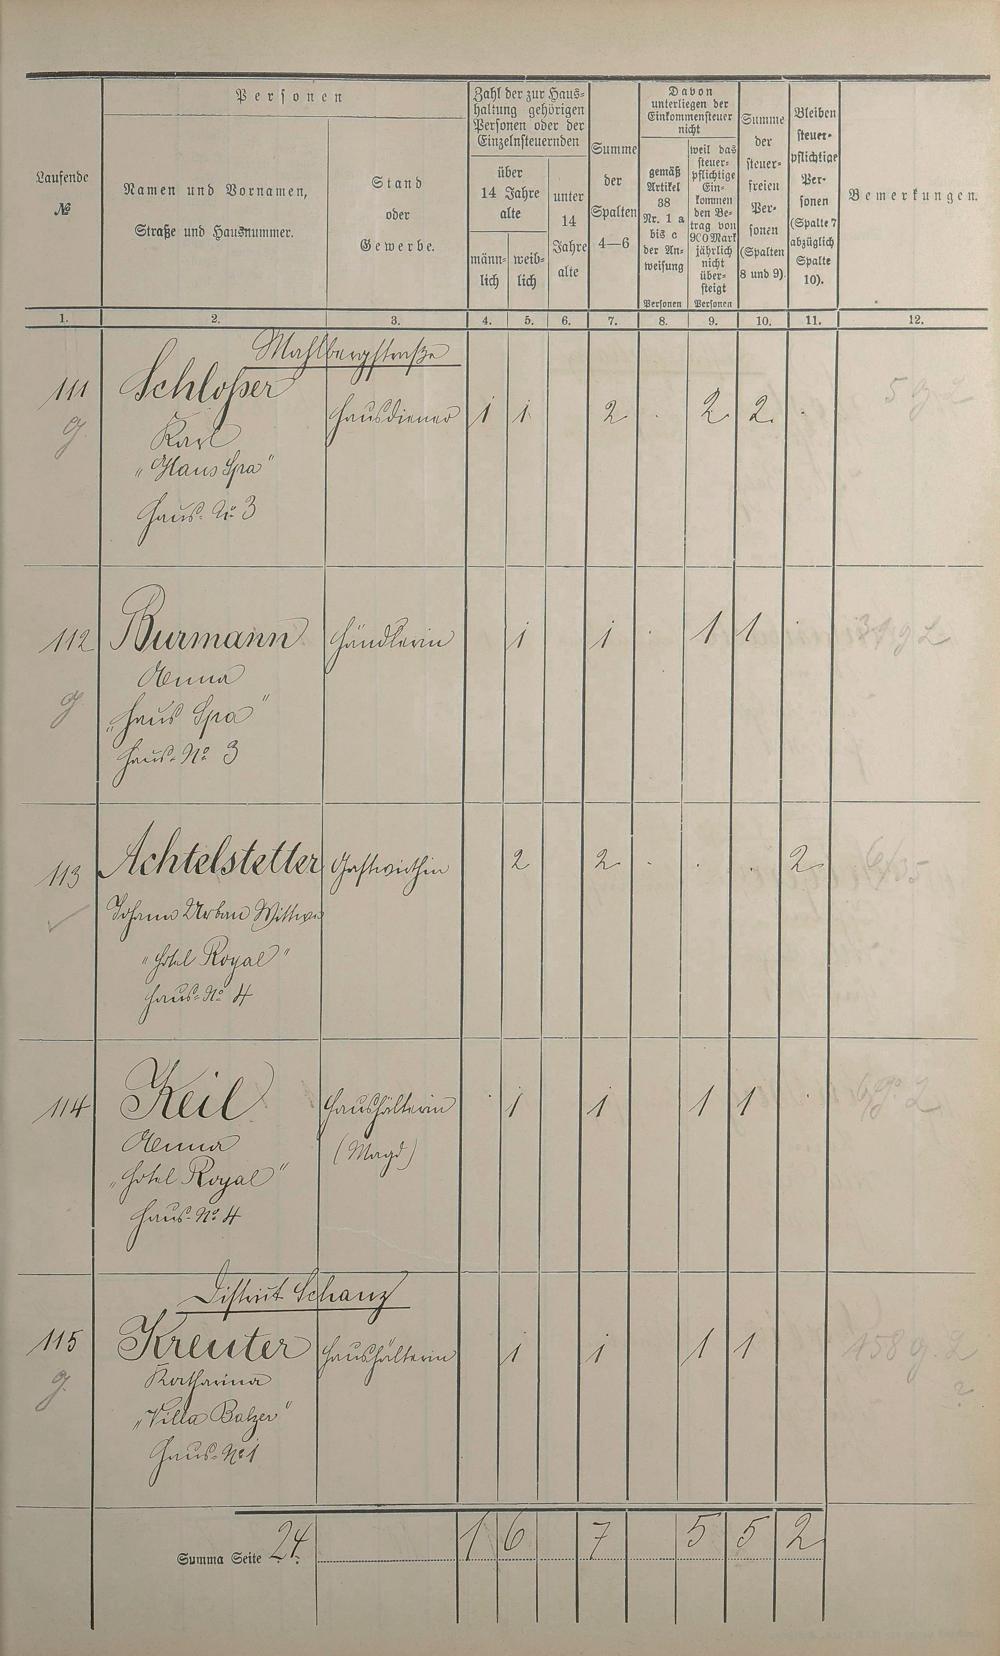 Personen
Laufende
№
Namen und Vornamen,
Straße und Hausnummer.
Stand
oder
Gewerbe.
Zahl der zur Haus-
haltung gehörigen
Personen oder der
Einzelnsteuernden
über
14 Jahre
alte
männ-
lich
weib-
lich
unter
14
Jahre
alte
Summe
der
Spalten
4—6
Davon
unterliegen der
Einkommensteuer
nicht
gemäß
Artikel
38
Nr. 1 a
bis c
der An-
weisung
Personen
weil das
steuer-
pflichtige
Ein-
kommen
den Be-
trag von
900 Mark
jährlich
nicht
über-
steigt
Personen
Summe
der
steuer-
freien
Per-
sonen
(Spalten
8 und 9).
Bleiben
steuer-
pflichtige
Per-
sonen
(Spalte 7
abzüglich
Spalte
10).
Bemerkungen.
1. 2. 3. 4. 5. 6. 7. 8. 9. 10. 11. 12.
Mahlbergstraße
111 Schloßer Hausdiener 1 1 2 . 2 2. .
g Karl
"Haus Spa"
Haus-No 3
112 Burmann Händlerin 1 1 . 1 1 .
g Anna
"Haus Spa"
Haus-No 3
113 Achtelstetter Gastwirthin 2 2 . . . 2
Johann Urban Wittwe
"Hotel Royal"
Haus-No 4
114 Keil Haushälterin . 1 1 1 1 .
Anna (Magd)
"Hotel Royal"
Haus-No 4
District Schanz
115 Kreuter Haushälterin 1 1 1 1 158 g. L
g. Katharina ?
"Villa Balzer"
Haus-No 1
Summa Seite 24. 1 6 7 5 5 2